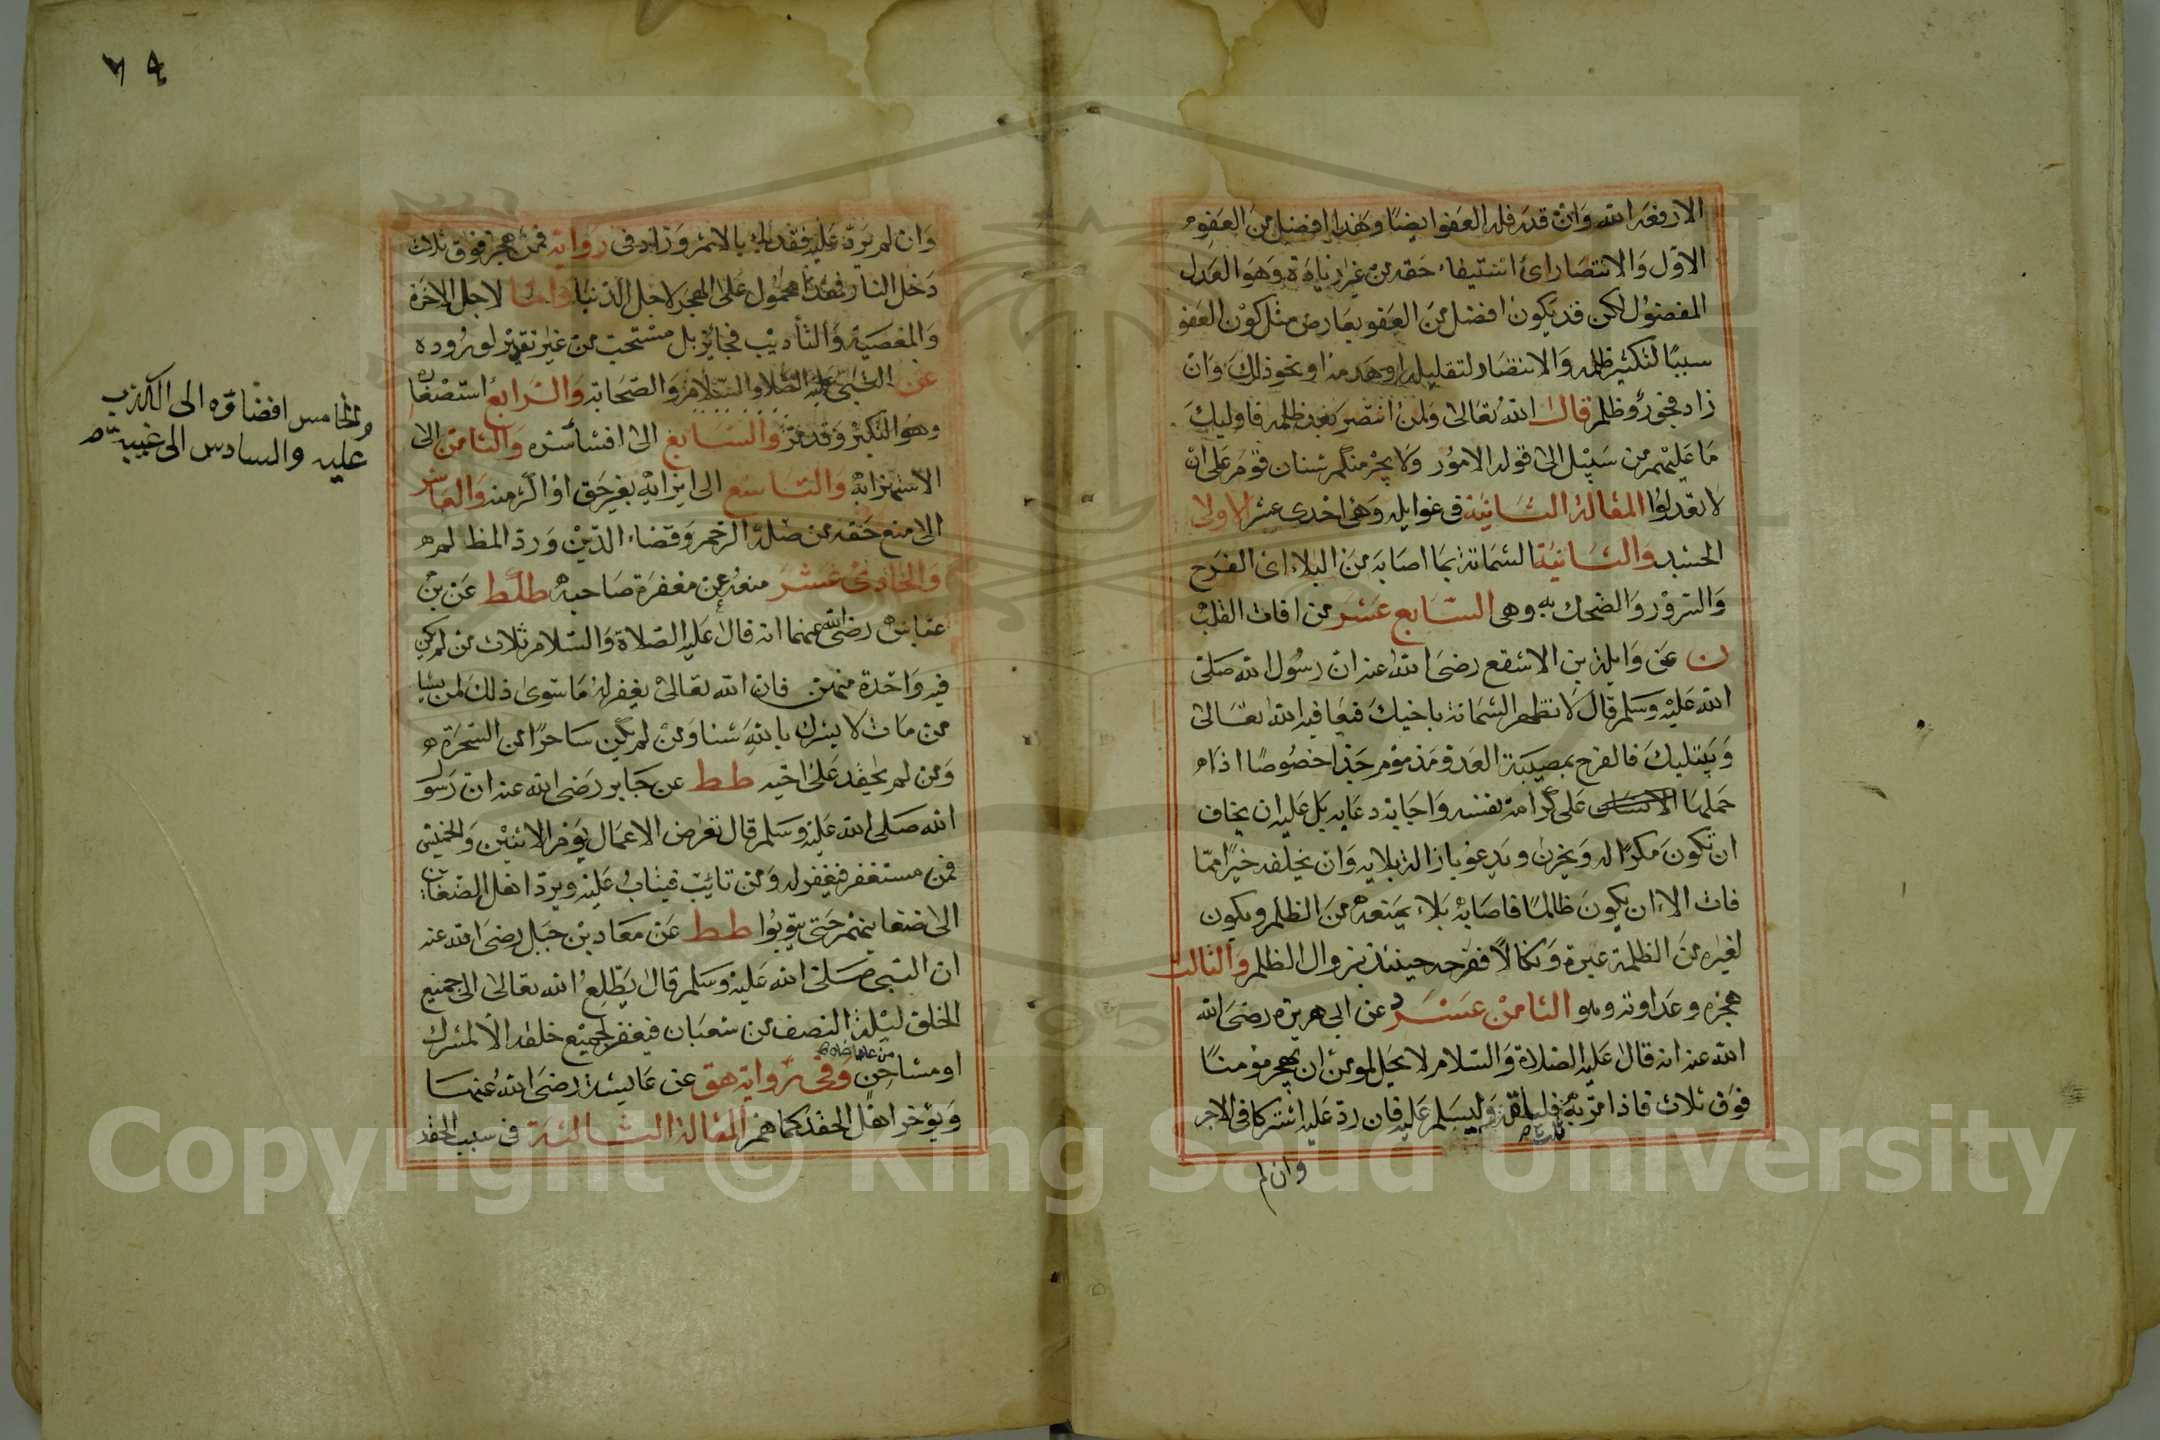 الا رفعه الله وان قدر فله العفو ايضا وهذا افضل من العفو
الاول والانتصار اى استيفاء حقه من غير زيادة وهو العدل
المفضول لكن قد يكون افضل من العفو بعارض مثل كون العفو
سببا لتكثير ظلمه والانتصار لتقليله او هدمه او نحو ذلك وان
زاد فجور وظلم قال الله تعالى ولمن انتصر بعد ظلمه فاوليك
ما عليهم من سبيل الى قوله الامور ولا يجرمنكم شنان قوم على ان
لا تعدلوا المقالة الثانية فى غوايله وهى احدى عشر الاولى
الحسد والثانية الشماتة بما اصابه من البلاء اى الفرح
والسرور والضحك به وهى السابع عشر من افات القلب
ن عن وايلة بن الاسقع رضى الله عنه ان رسول الله صلى
الله عليه وسلم قال لا تظهر الشماتة باخيك فيعافيه الله تعالى
ويبتليك فالفرح بمصيبة العدو مذموم جدا خصوصا اذا
حملها على كرامة نفسه واجابة دعايه بل عليه ان يخاف
ان تكون مكرا له ويحزن ويدعو بازالة بلايه وان يخلفه خيرا مما
فات الا ان يكون ظالما فاصابه بلاء يمنعه من الظلم ويكون
لغيره من الظلمة عبرة ونكالا ففرحه حينئذ بزوال الظلم والثالث
هجره وعداوته وهو الثامن عشر د عن ابى هريرة رضى الله
الله عنه انه قال عليه الصلاة والسلام لا يحل لمومن ان يهجر مؤمنا
فوق ثلاث فاذا مر به فليلقه وليسلم عليه فان رد عليه اشتركا فى الاجر
ثلاث
وان لم
٧٤
وان لم يرد عليه فقد باء بالاثم وزاد فى رواية فمن هجر فوق ثلاث
دخل النار فهذا محمول على الهجر لاجل الدنيا واما لاجل الاخرة
والمعصية والتأديب فجائز بل مستحب من غير تقدير لوروده
عن النبى عليه الصلاة والسلام والصحابة والرابع استصغاره
وهو التكبر وقد مر والسابع الى افشاء سره والثامن الى
الاستهزابه والتاسع الى ايذايه بغير حق او اكثر منه والعاشر
الى منع حقه من صلة الرحم وقضاء الدين ورد المظالم
والحادى عشر منعه عن مغفرة صاحبه طط عن بن
عباس رضى الله عنهما انه قال عليه الصلاة والسلام ثلاث من لم يكن
فيه واحدة منهن فان الله تعالى يغفر له ما سوى ذلك لمن يشا
من مات لا يشرك بالله شئا ومن لم يكن ساحرا من السحرة
ومن لم يحقد على اخيه طط عن جابر رضى الله عنه ان رسول
الله صلى الله عليه وسلم قال تعرض الاعمال يوم الاثنين والخميس
فمن مستغفر فيغفر له ومن تايب فيتاب عليه ويرد اهل الضغاين
الى ضغاينهم حتى يتوبوا طط عن معاذ بن جبل رضى الله عنه
ان النبى صلى الله عليه وسلم قال يطلع الله تعالى الى جميع
الخلق ليلة النصف من شعبان فيغفر لجميع خلقه الا لمشرك
او مشاحن وفى رواية هق عن عايشة رضى الله عنها
ويؤخر اهل الحقد كما هم المقالة الثالثة فى سبب الحقد
والخامس افضاؤه الى الكذب
عليه والسادس الى غيبته
Copyright © King Saud University